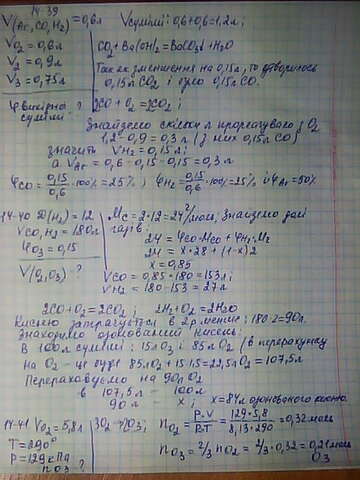 14-39
V(Ar, CO, H2) = 0,6л
V O2 = 0,6л
V2 = 0,9л
V3 = 0,75л
φ вихідної суміші - ?
V суміші: 0,6+0,6=1,2л;
CO2 + Ba(OH)2 = BaCO3↓ + H2O
Так як зменшення на 0,15л, то утворилось
0,15л CO2 і було 0,15л CO.
2CO + O2 = 2CO2;
Знайдемо скільки л прореагувало з O2
1,2-0,9 = 0,3л (з них 0,15л CO)
значить V H2 = 0,15л;
а V Ar = 0,6-0,15-0,15 = 0,3л
φCO = 0,15/0,6 · 100% = 25%; φH2 = 0,15/0,6 · 100% = 25% і φAr = 50%
14-40 D(H2) = 12
V CO, H2 = 180л
φO3 = 0,15
V(O2, O3) - ?
Mc = 2·12 = 24г/моль; Знайдемо далі
24 = φCO·MCO + φH2·M2
24 = x·28 + (1-x)2
x = 0,85
VCO = 0,85·180 = 153л;
VH2 = 180-153 = 27л
2CO + O2 = 2CO2; 2H2 + O2 = 2H2O
Кисню затрачується в 2р менше: 180:2=90л.
Знаходимо озонований кисень:
В 100л суміші: 15л O3 і 85л O2 (в перерахунку
на O2 - це буде 85л O2 + 15·1,5=22,5л O2 = 107,5л
Перераховуємо на 90л O2
в 107,5л - 100л
90л x; x = 84л озонованого кисню.
14-41 V O2 = 5,8л
T = 290°
P = 129кПа
n O3 - ?
3O2 → 2O3;
n O2 = P·V/R·T = 129·5,8/8,13·290 = 0,32 моль
n O3 = 2/3 n O2 = 2/3 · 0,32 = 0,21 моль
O3